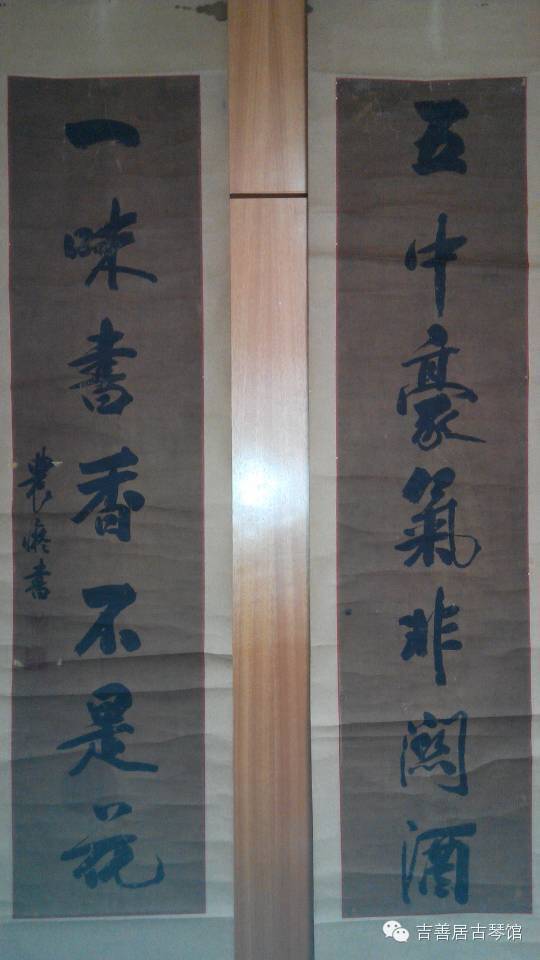 五中豪氣非関酒
一味書香不是花
農
書
吉善居古琴馆